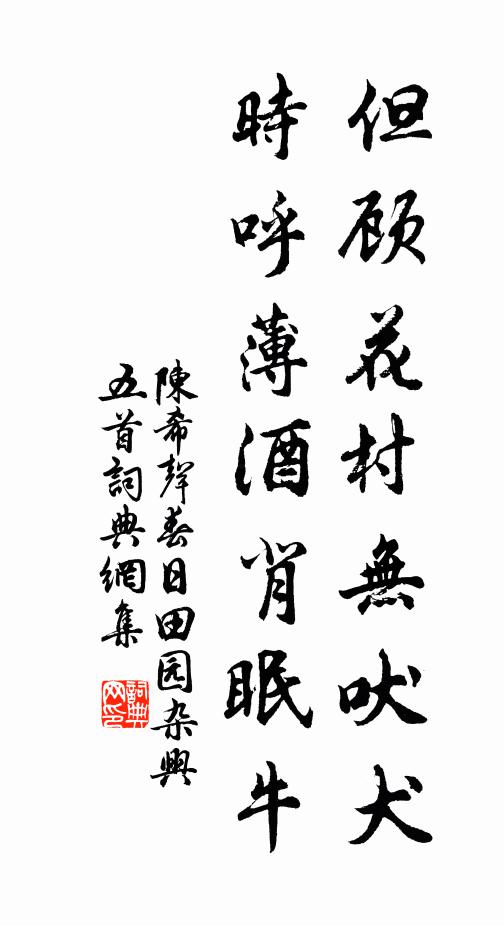 但顾花村無吠犬
時呼薄酒肯眠牛
陳希聲春日田园杂興
五首詞典網集
詞典網印